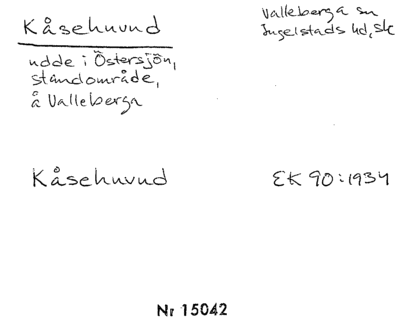 Kåsehuvud
Valleberga sn
Ingelstads hd, Sk
udde i Östersjön,
standområde,
å Valleberga
Kåsehuvud
EK 90:1934
Nr 15042